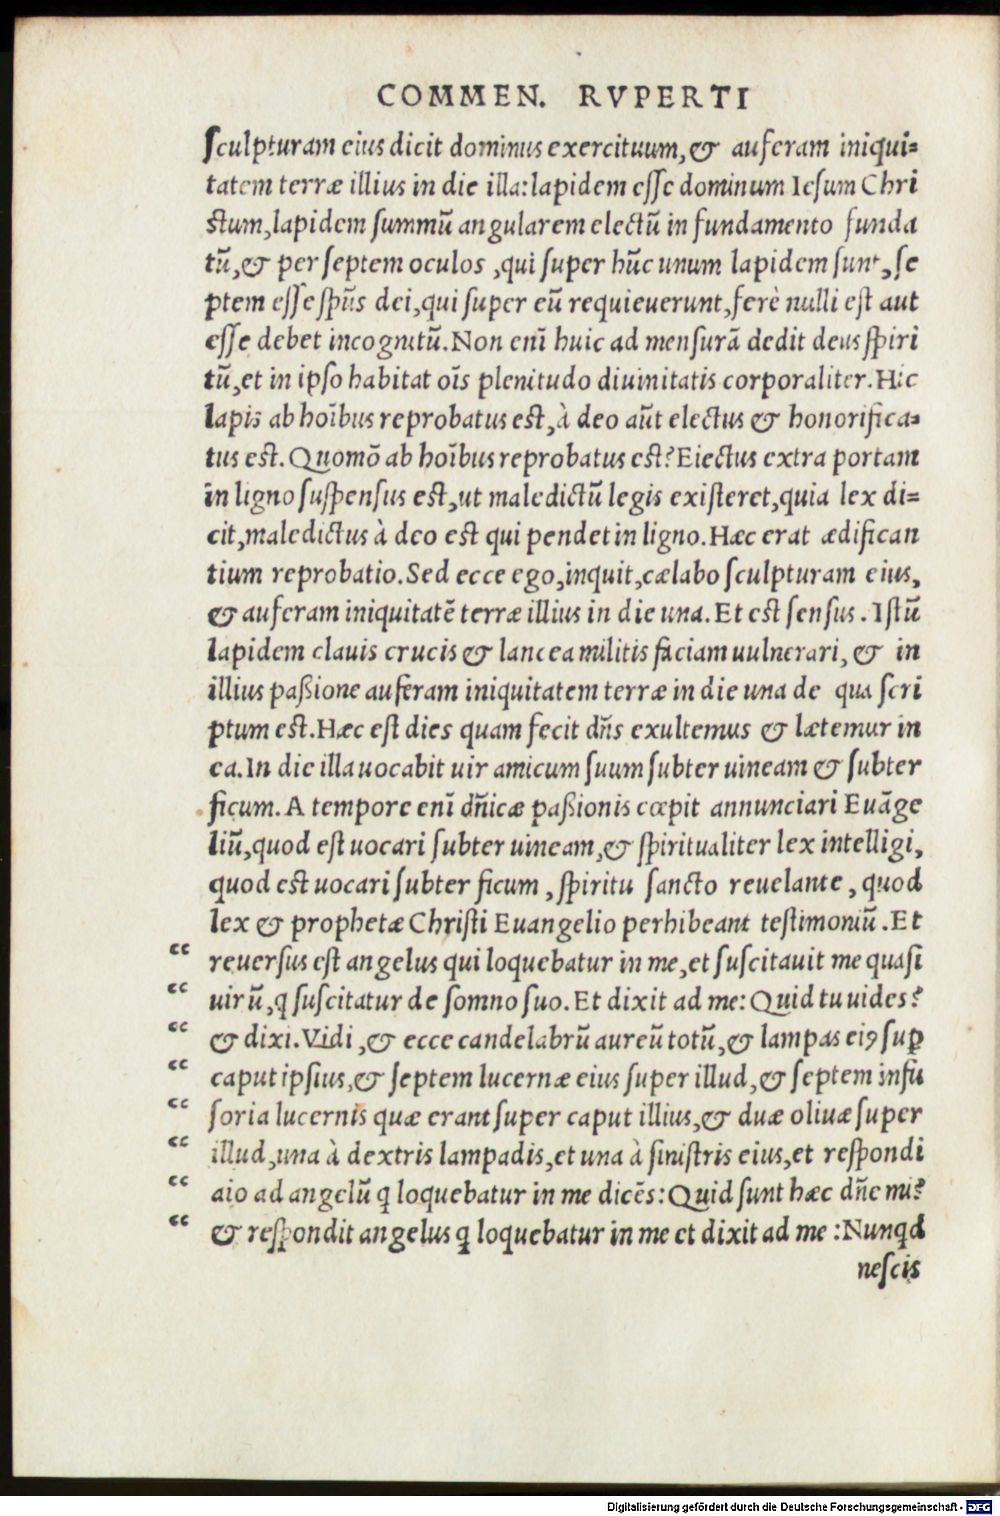 COMMEN. RVPERTI
sculpturam eius dicit dominus exercituum, & auferam iniqui=
tatem terræ illius in die illa: lapidem esse dominum Iesum Chri
stum, lapidem summũ angularem electũ in fundamento funda
tũ, & per septem oculos, qui super hũc unum lapidem sunt, se
ptem esse spũs dei, qui super eũ requieuerunt, ferè nulli est aut
esse debet incognitũ. Non enĩ huic ad mensurã dedit deus spiri
tũ, et in ipso habitat oĩs plenitudo diuinitatis corporaliter. Hic
lapis ab hoĩbus reprobatus est, à deo aũt electus & honorifica=
tus est. Quomõ ab hoĩbus reprobatus est? Eiectus extra portam
in ligno suspensus est, ut maledictũ legis existeret, quia lex di=
cit, maledictus à deo est qui pendet in ligno. Hæc erat ædifican
tium reprobatio. Sed ecce ego, inquit, cælabo sculpturam eius,
& auferam iniquitatẽ terræ illius in die una. Et est sensus. Istũ
lapidem clauis crucis & lancea militis faciam uulnerari, & in
illius paßione auferam iniquitatem terræ in die una de qua scri
ptum est. Hæc est dies quam fecit dñs exultemus & lætemur in
ea. In die illa uocabit uir amicum suum subter uineam & subter
ficum. A tempore enĩ dñicæ paßionis cœpit annunciari Euãge
liũ, quod est uocari subter uineam, & spiritualiter lex intelligi,
quod est uocari subter ficum, spiritu sancto reuelante, quod
lex & prophetæ Christi Euangelio perhibeant testimoniũ. Et
“ reuersus est angelus qui loquebatur in me, et suscitauit me quasi
“ uirũ, q̃ suscitatur de somno suo. Et dixit ad me: Quid tu uides?
“ & dixi. Vidi, & ecce candelabrũ aureũ totũ, & lampas eiꝰ suꝑ
“ caput ipsius, & septem lucernæ eius super illud, & septem infũ
“ soria lucernis quæ erant super caput illius, & duæ oliuæ super
“ illud, una à dextris lampadis, et una à sinistris eius, et respondi
“ aio ad angelũ q̃ loquebatur in me dicẽs: Quid sunt hæc dñe mi?
“ & respondit angelus q̃ loquebatur in me et dixit ad me: Nunqd
nescis
Digitalisierung gefördert durch die Deutsche Forschungsgemeinschaft - DFG